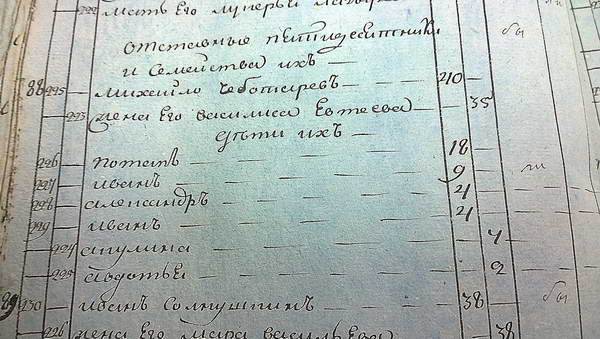 292 мать Его лукерья
отставные пятидесятники бы
и Семейства ихъ —
88 225 — михайло Чеботаревъ — 40 —
293 жена Его василиса Евтеева — 35
дѣти ихъ —
226 — потапъ — 18 —
227 — иванъ — 9 — ли
228 — александръ — 4 —
229 — иванъ — 4 —
294 — акулина — 7
295 — авдотья — 2
89 230 — иванъ Солнушкинъ — 38 — бы
226 жена Его мара васильева 38